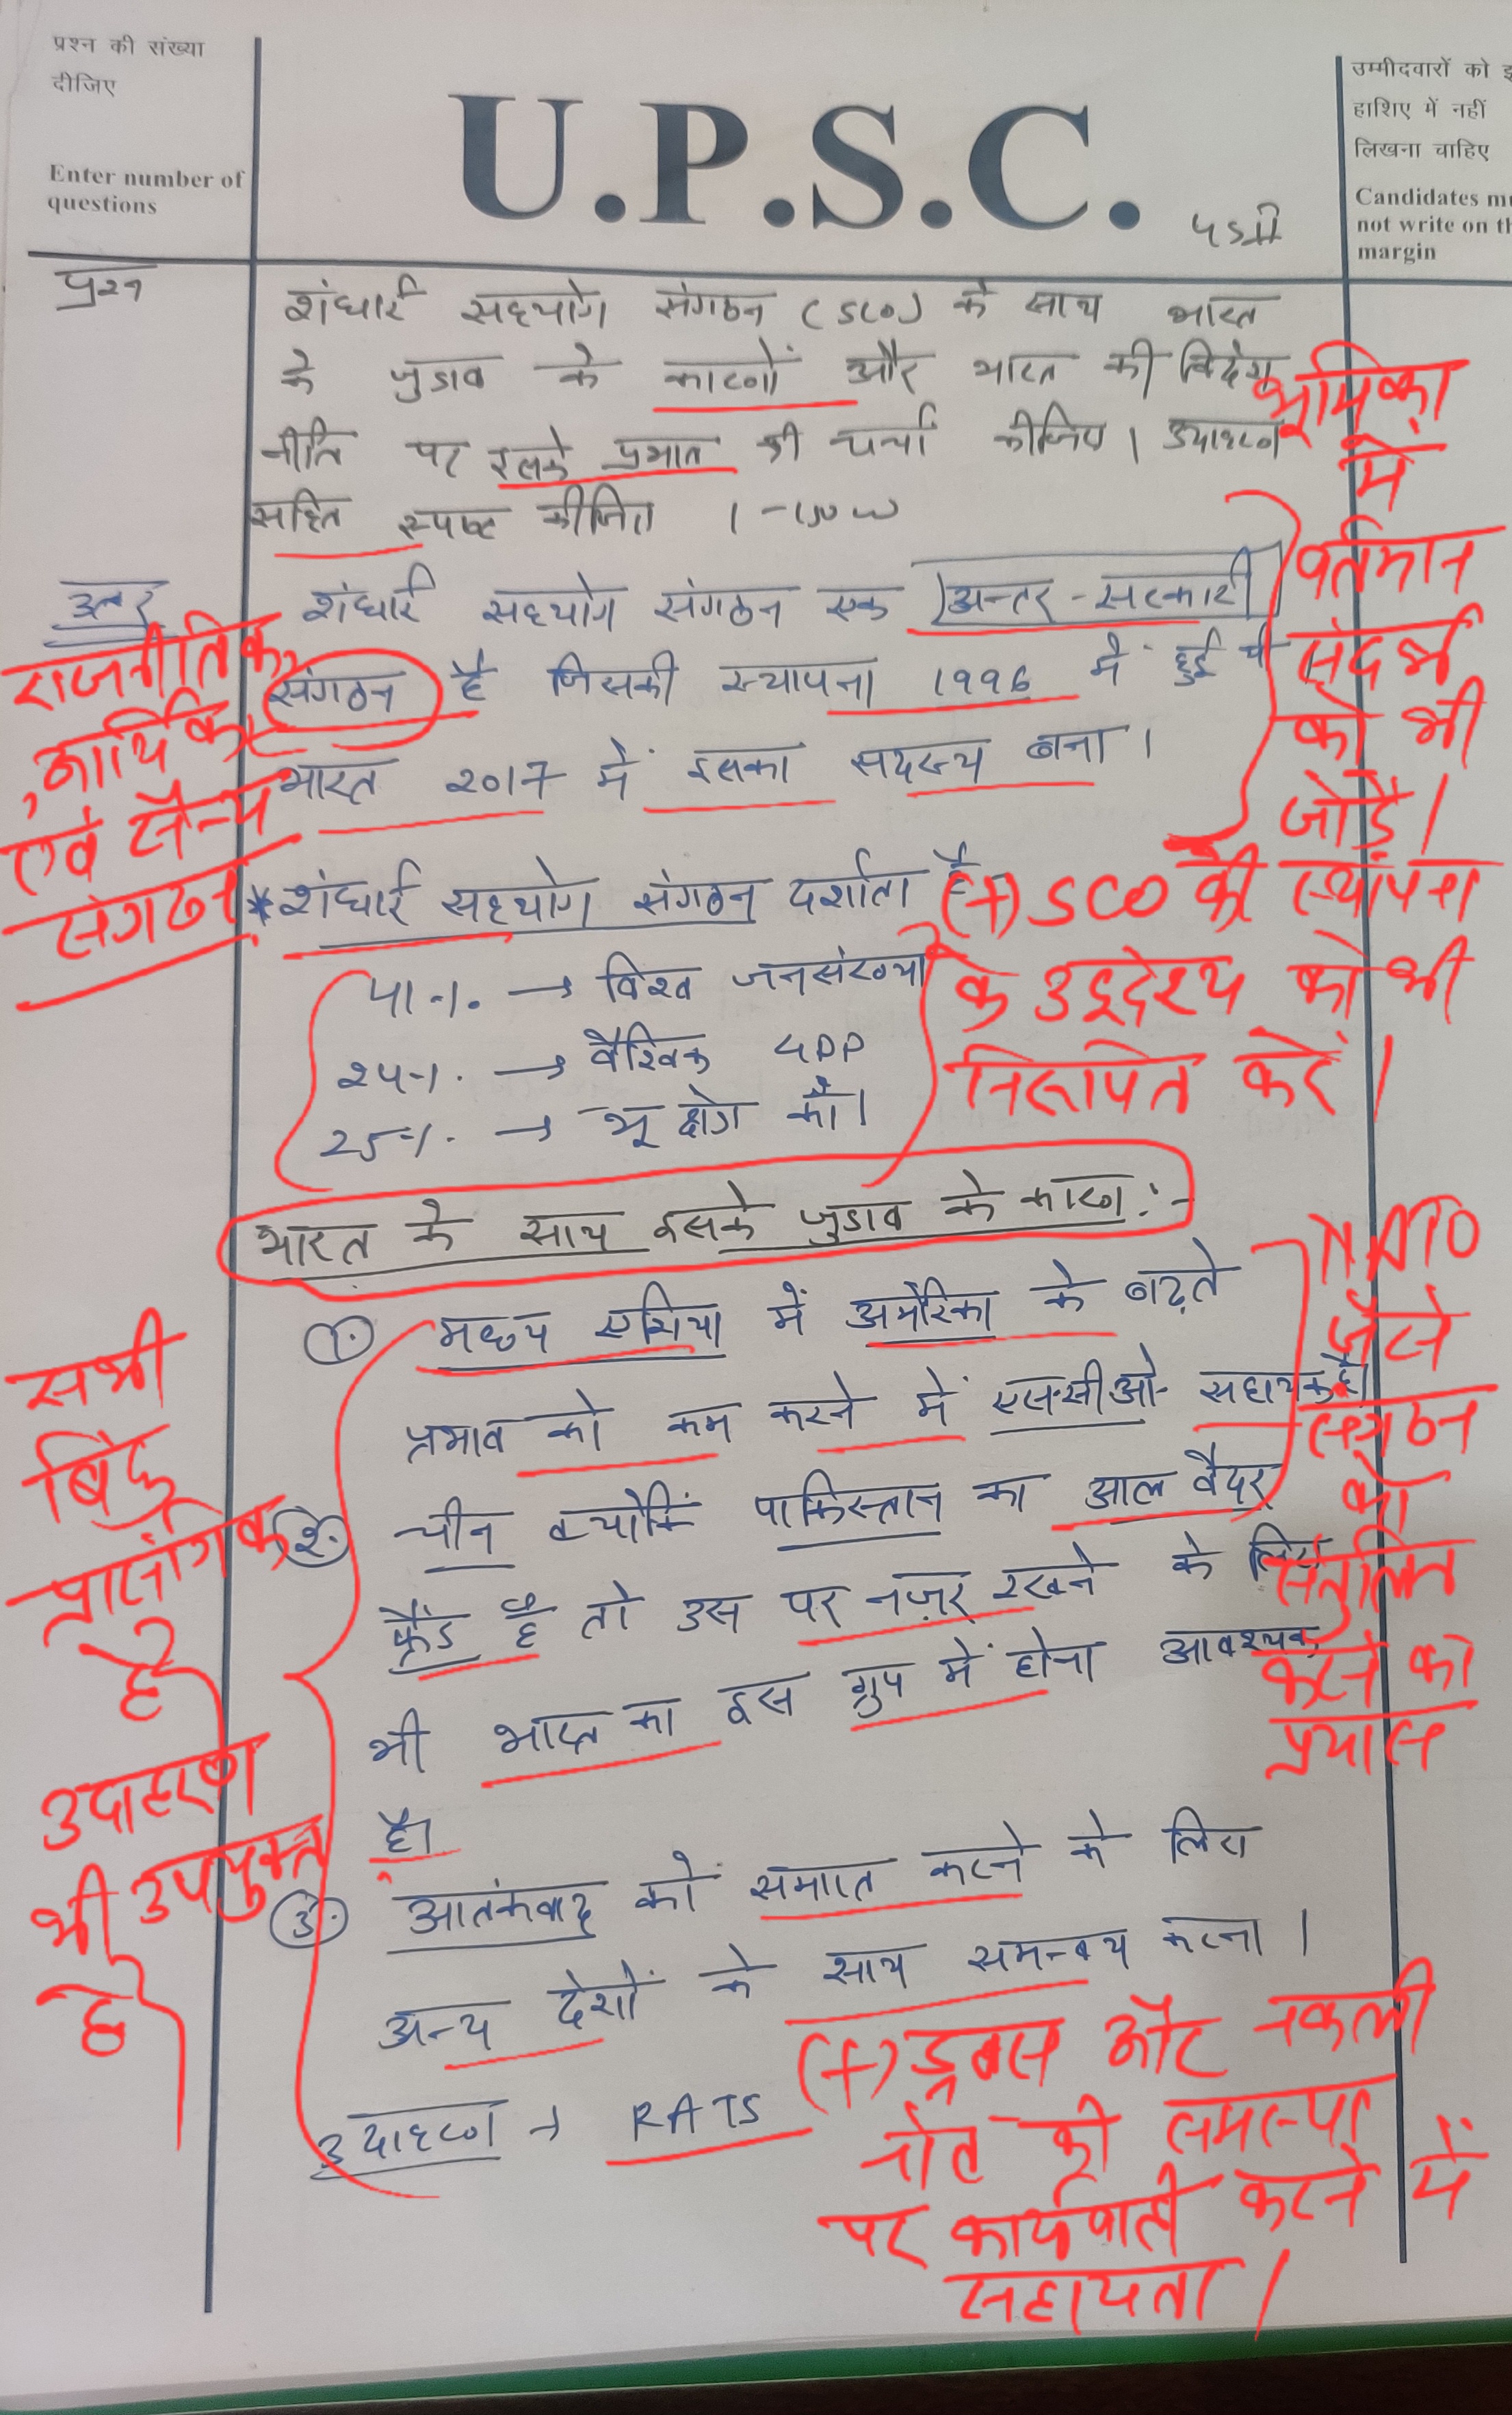 प्रश्न की संख्या
दीजिए
Enter number of
questions
U.P.S.C.
उम्मीदवारों को इ
हाशिए में नहीं
लिखना चाहिए
Candidates mu
not write on th
margin
प्रश्न
शंघाई सहयोग संगठन (SCO) के साथ भारत
के जुडाव के कारणों और भारत की विदेश
नीति पर इसके प्रभाव की चर्चा कीजिए। उदाहरण
सहित स्पष्ट कीजिए।
उत्तर
शंघाई सहयोग संगठन एक अन्तर-सरकारी
संगठन है जिसकी स्थापना 1996 में हुई थी
भारत 2017 में इसका सदस्य बना।
भूमिका
में
वर्तमान
संदर्भ
को भी
जोड़ें।
राजनीतिक,
आर्थिक,
एवं सैन्य
संगठन
* शंघाई सहयोग संगठन दर्शाता है
41% → विश्व जनसंख्या
24% → वैश्विक GDP
25% → भू क्षेत्र को।
(+) SCO की स्थापना
के उद्देश्य को भी
निरूपित करें।
भारत के साथ इसके जुडाव के कारण:-
① मध्य एशिया में अमेरिका के बढ़ते
प्रभाव को कम करने में एससीओ सहायक है।
② चीन क्योंकि पाकिस्तान का आल वैदर
फ्रैंड है तो उस पर नज़र रखने के लिए
भी भारत का इस ग्रुप में होना आवश्यक
है।
③ आतंकवाद को समाप्त करने के लिए
अन्य देशों के साथ समन्वय करना।
उदाहरण → RATS
NATO
जैसे
संगठन
को
संतुलित
करने का
प्रयास
सभी
बिंदु
प्रासंगिक
है
उदाहरण
भी उपयुक्त
है
(+) ड्रग्स और नकली
नोट की समस्या
पर कार्यवाही करने में
सहायता।